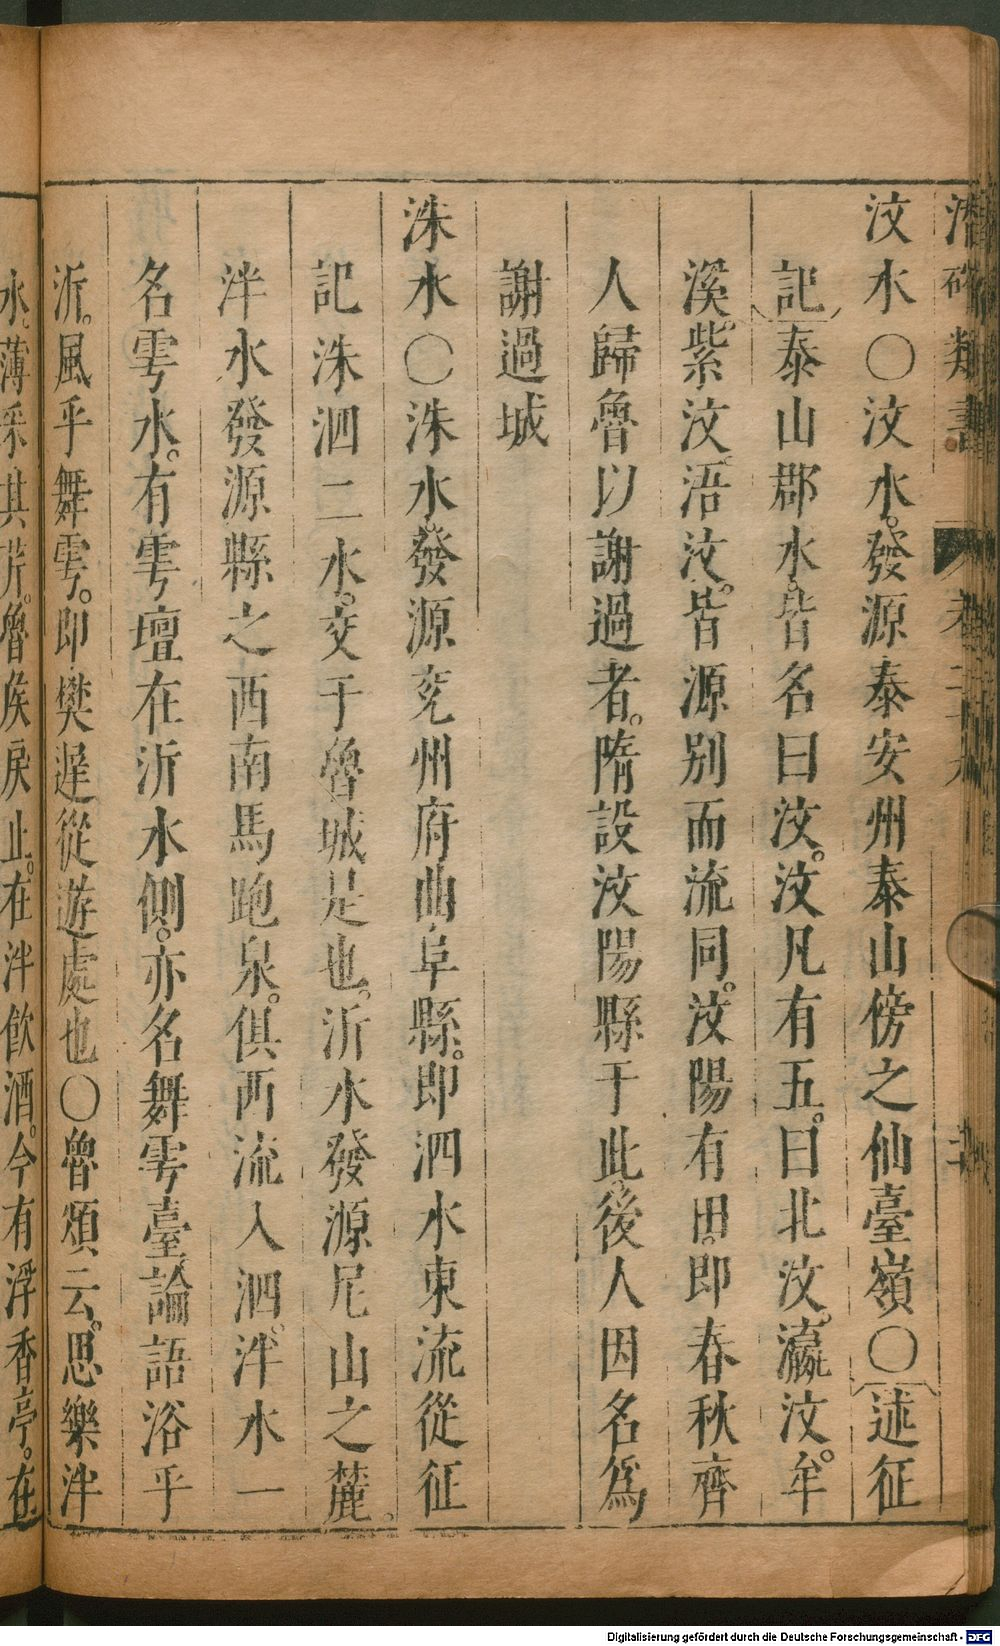 潛確類書
汶水○汶水。發源泰安州泰山傍之仙臺嶺○〔述征
記〕泰山郡水。皆名曰汶。汶凡有五。曰北汶。瀛汶。牟
溪。紫汶。浯汶。皆源別而流同。汶陽有田。即春秋齊
人歸魯以謝過者。隋設汶陽縣于此。後人因名爲
謝過城
洙水○洙水。發源兖州府曲阜縣。即泗水東流從征
記洙泗二水。交于魯城是也。沂水發源尼山之麓。
泮水發源縣之西南馬跑泉。俱西流入泗。泮水一
名雩水。有雩壇在沂水側。亦名舞雩臺論語浴乎
沂。風乎舞雩。即樊遲從遊處也○魯頌云。思樂泮
水。薄采其芹。魯侯戾止。在泮飲酒。今有浮香亭。在
Digitalisierung gefördert durch die Deutsche Forschungsgemeinschaft - DFG